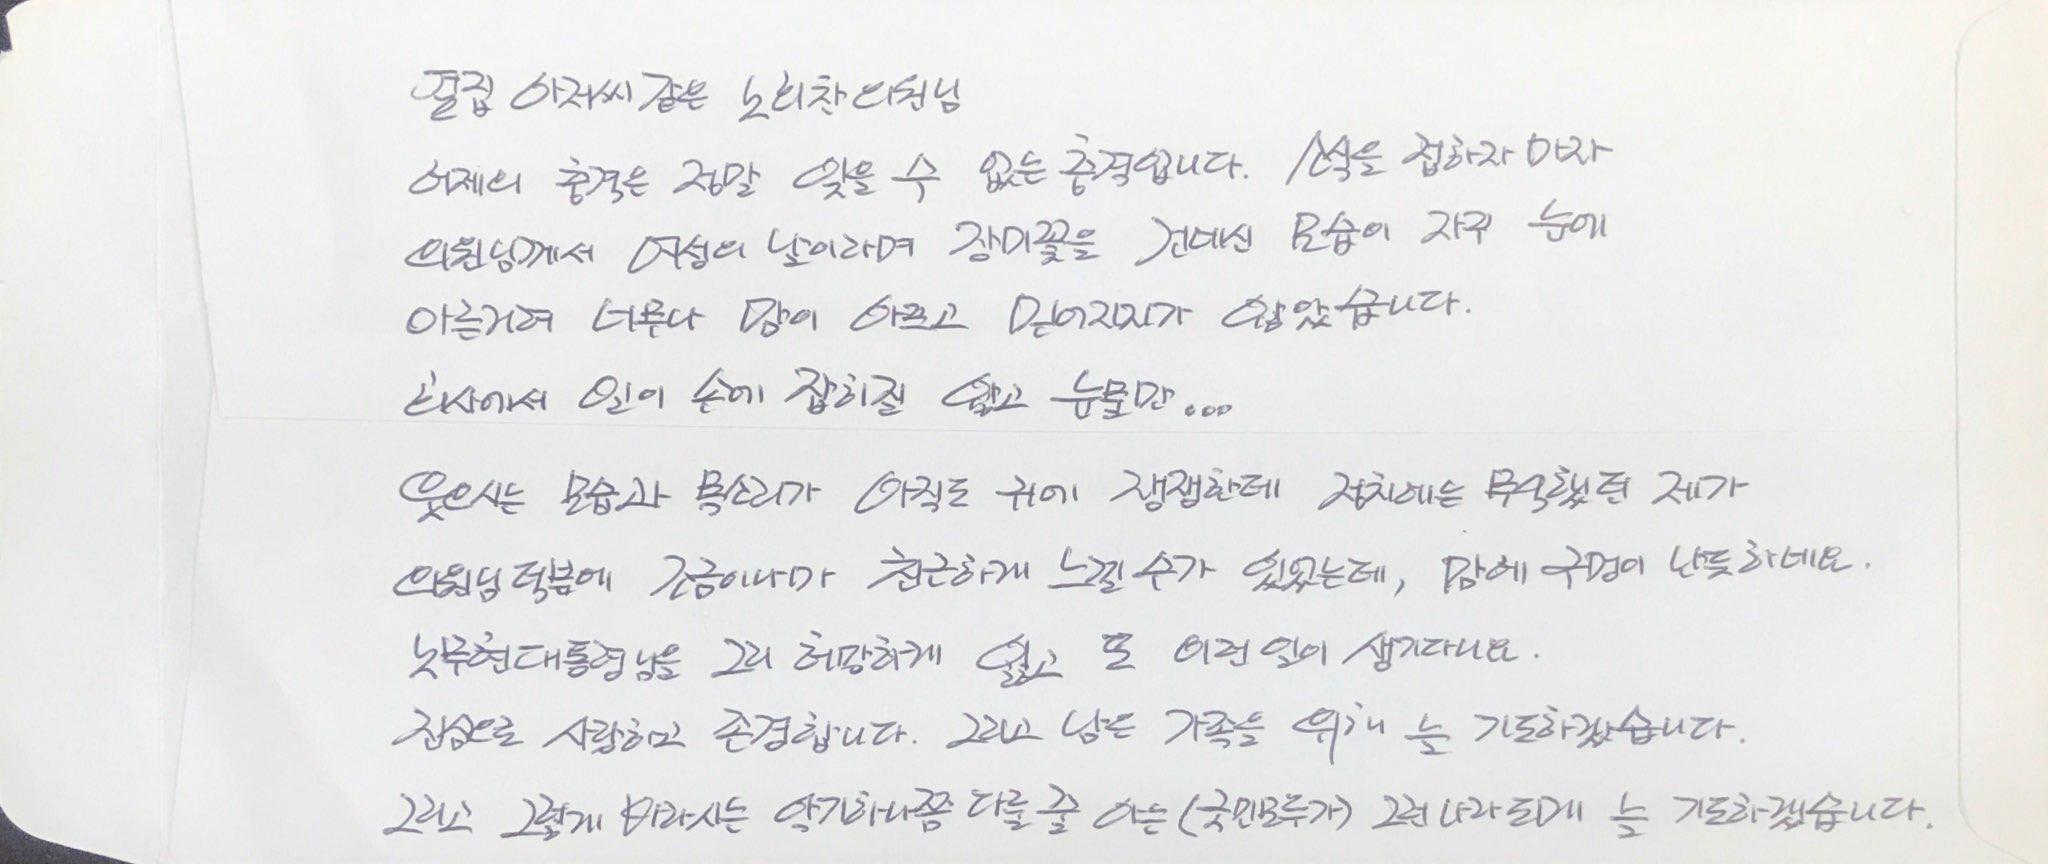 옆집 아저씨 같은 노회찬 의원님
어제의 충격은 정말 잊을 수 없는 충격입니다. 소식을 접하자 마자
의원님께서 여성의 날이라며 장미꽃을 건네신 모습이 자꾸 눈에
아른거려 너무나 맘이 아프고 믿어지지가 않았습니다.
회사에서 일이 손에 잡히질 않고 눈물만...
웃으시는 모습과 목소리가 아직도 귀에 쟁쟁한데 정치에는 무식했던 제가
의원님 덕분에 조금이나마 친근하게 느낄 수가 있었는데, 맘에 구멍이 난듯 하네요.
노무현대통령님을 그리 허망하게 잃고 또 이런 일이 생기다니요.
진심으로 사랑하고 존경합니다. 그리고 남은 가족을 위해 늘 기도하겠습니다.
그리고 그렇게 바라시는 악기하나쯤 다룰 줄 아는 (국민모두가) 그런 나라 되게 늘 기도하겠습니다.